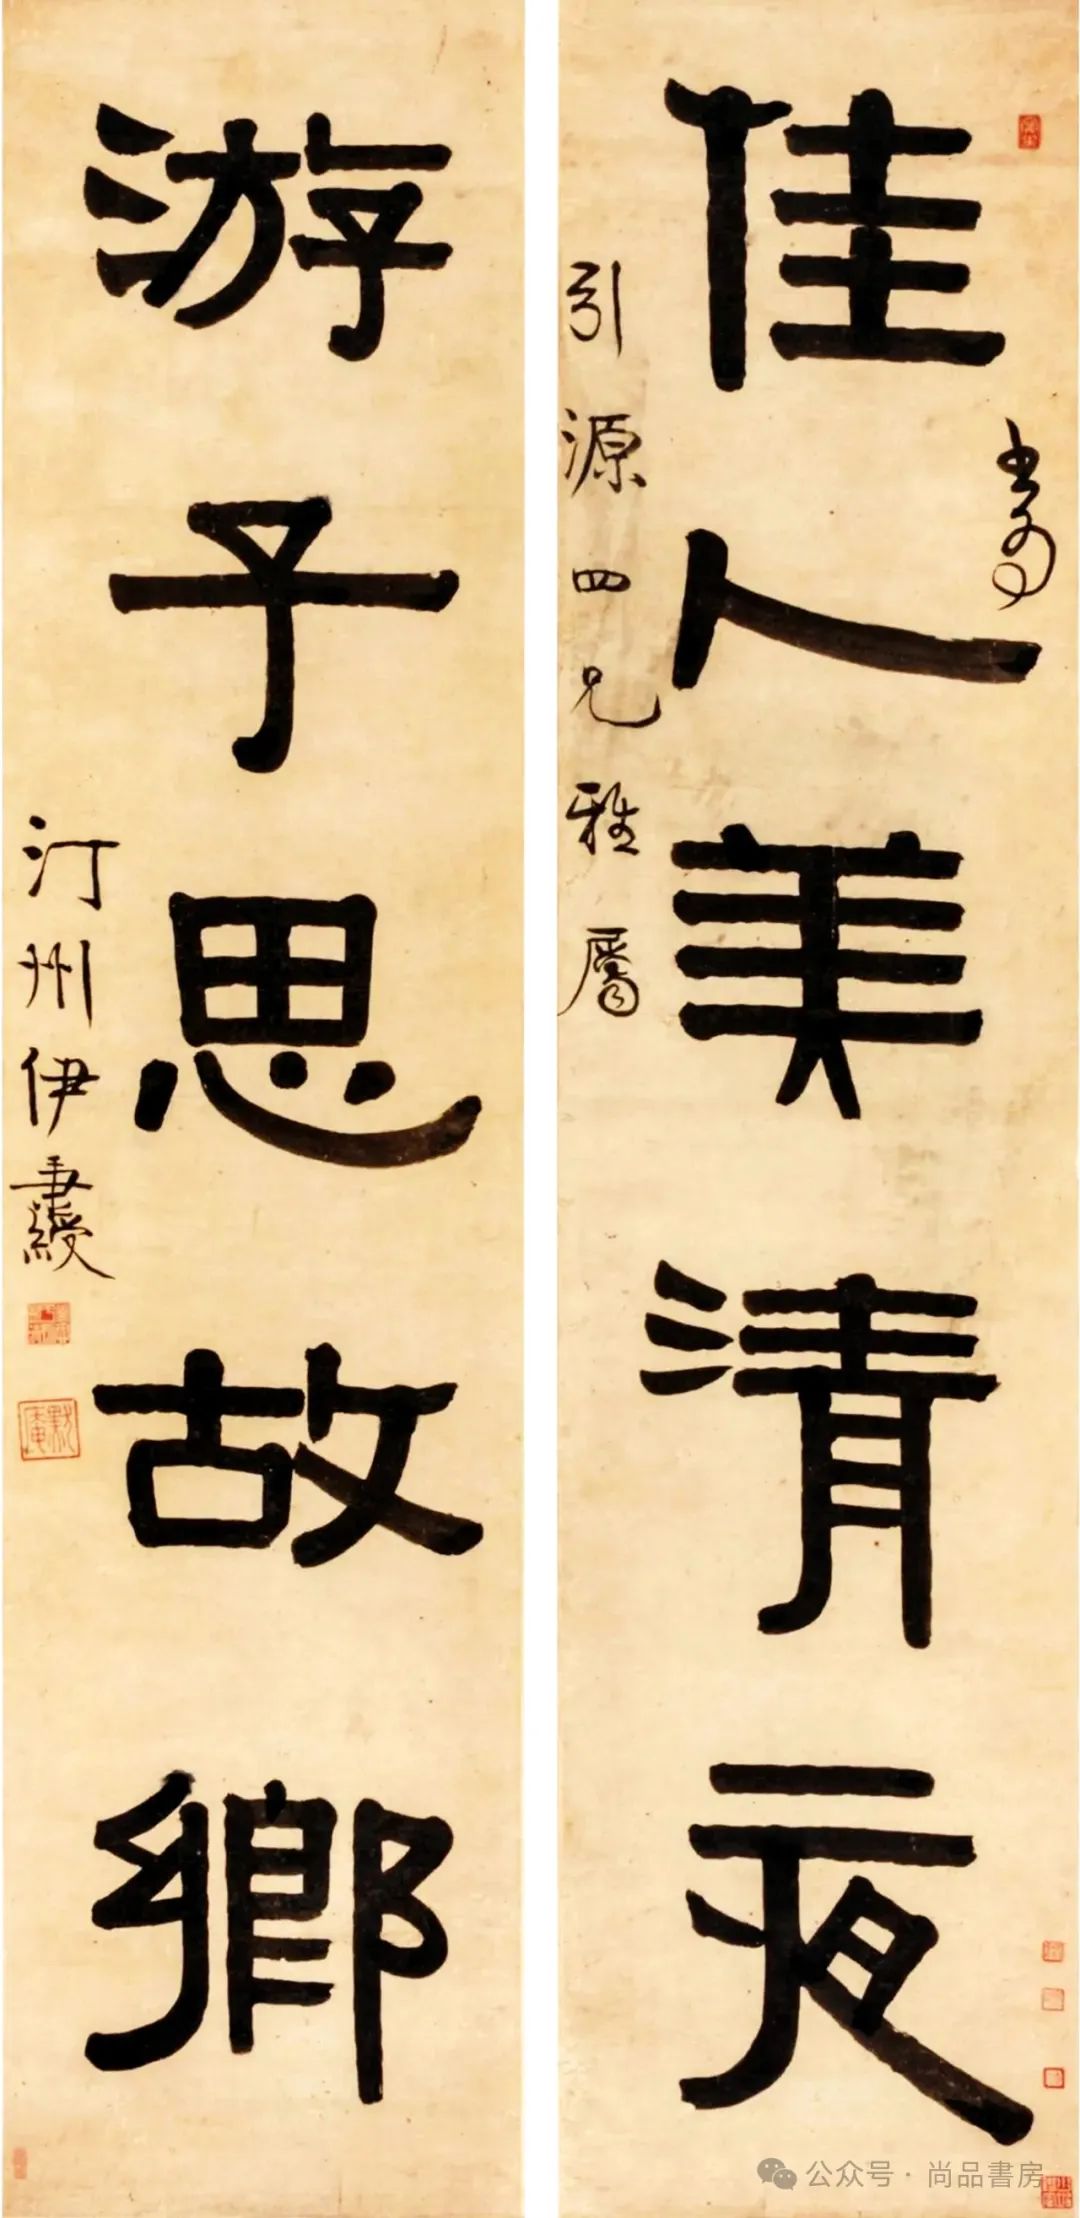 佳人美清夜
書為
引源四兄雅屬
游子思故鄉
汀州伊秉綬
默庵
公众号·尚品書房